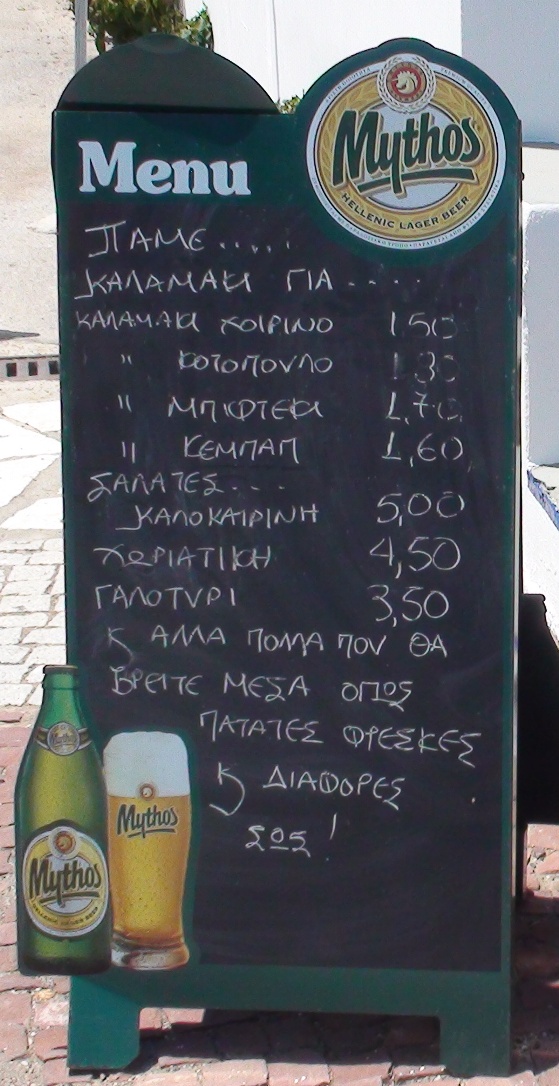 Menu
Mythos
HELLENIC LAGER BEER
ΠΑΜΕ.....
ΚΑΛΑΜΑΚΙ ΓΙΑ....
ΚΑΛΑΜΑΚΙ ΧΟΙΡΙΝΟ 1,50
" ΚΟΤΟΠΟΥΛΟ 1,80
" ΜΠΙΦΤΕΚΙ 1,70
" ΚΕΜΠΑΠ 1,60
ΣΑΛΑΤΕΣ...
ΚΑΛΟΚΑΙΡΙΝΗ 5,00
ΧΩΡΙΑΤΙΚΗ 4,50
ΓΑΛΟΤΥΡΙ 3,50
Κ ΑΛΛΑ ΠΟΛΛΑ ΠΟΥ ΘΑ
ΒΡΕΙΤΕ ΜΕΣΑ ΟΠΩΣ
ΠΑΤΑΤΕΣ ΦΡΕΣΚΕΣ
Κ ΔΙΑΦΟΡΕΣ
ΣΩΣ!
Mythos
Mythos